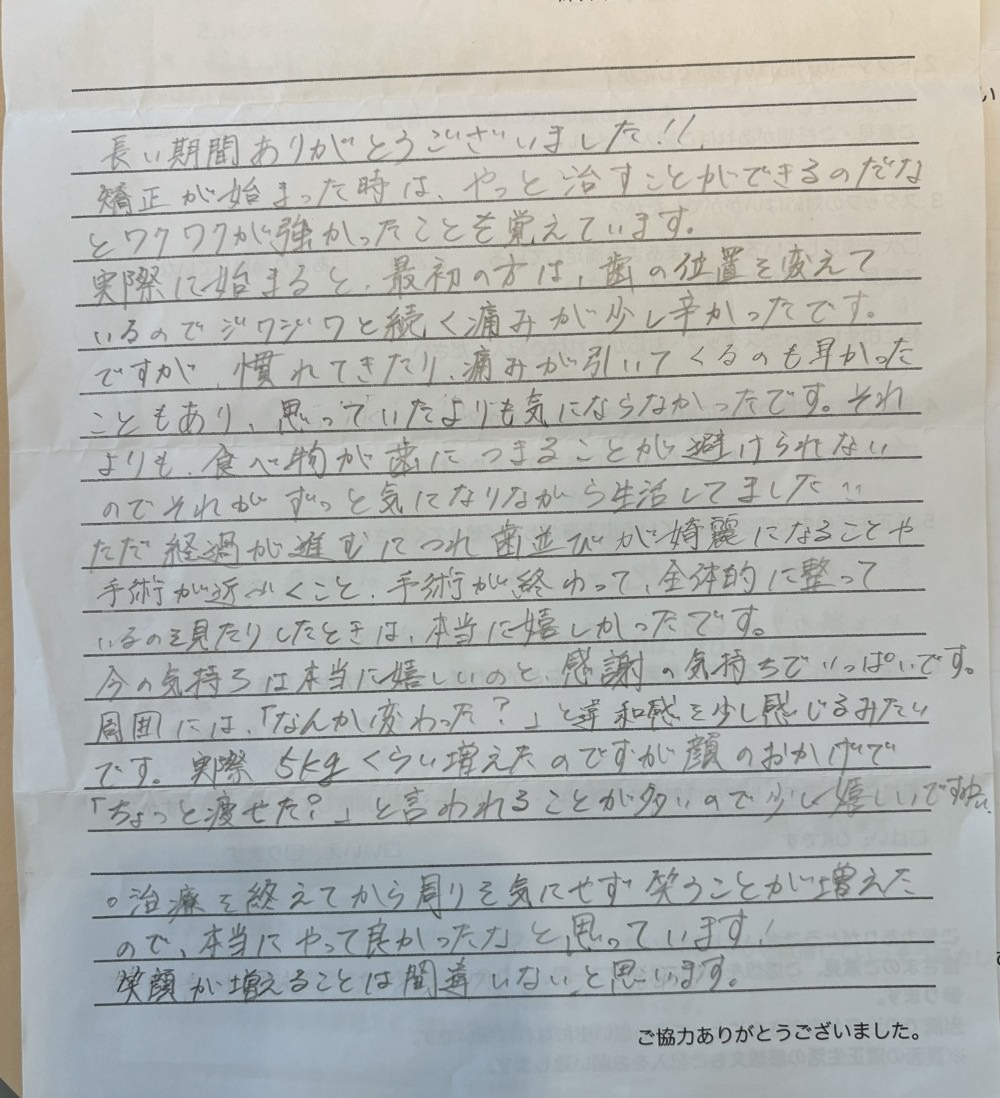 長い期間ありがとうございました!!
矯正が始まった時は、やっと治すことができるのだな
とワクワクが強かったことを覚えています。
実際に始まると、最初の方は、歯の位置を変えて
いるのでジワジワと続く痛みが少し辛かったです。
ですが、慣れてきたり、痛みが引いてくるのも早かった
こともあり、思っていたよりも気にならなかったです。それ
よりも、食べ物が歯につまることが避けられない
のでそれがずっと気になりながら生活してました
ただ経過が進むにつれ歯並びが綺麗になることや
手術が近づくこと、手術が終わって、全体的に整って
いるのを見たりしたときは、本当に嬉しかったです。
今の気持ちは本当に嬉しいのと、感謝の気持ちでいっぱいです。
周囲には、「なんか変わった?」と違和感を少し感じるみたい
です。実際 5kgくらい増えたのですが顔のおかげで
「ちょっと痩せた?」と言われることが多いので少し嬉しいですね。
。治療を終えてから周りを気にせず笑うことが増えた
ので、本当にやって良かったなと思っています!
笑顔が増えることは間違いないと思います。
ご協力ありがとうございました。